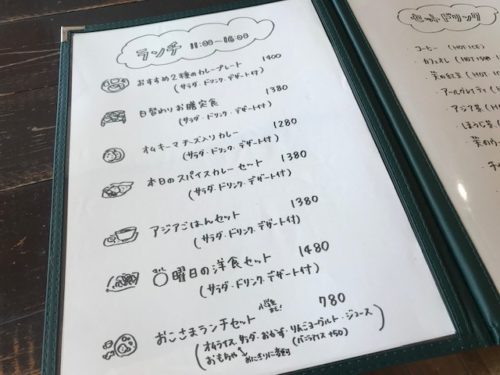 ランチ 11:00〜16:00
おすすめ2種のカレープレート 1400
(サラダ・ドリンク・デザート付)
日替わりお膳定食 1380
(サラダ・ドリンク・デザート付)
オムキーマチーズ入りカレー 1280
(サラダ・ドリンク・デザート付)
本日のスパイスカレーセット 1380
(サラダ・ドリンク・デザート付)
アジアごはんセット 1380
(サラダ・ドリンク・デザート付)
〇曜日の洋食セット 1480
(サラダ・ドリンク・デザート付)
おこさまランチセット 780
(オムライス・サラダ・おかず・りんごヨーグルト・ジュース・
おもちゃ
コーヒー (HOT・ICE)
カフェオレ
アジア茶
ほうじ茶